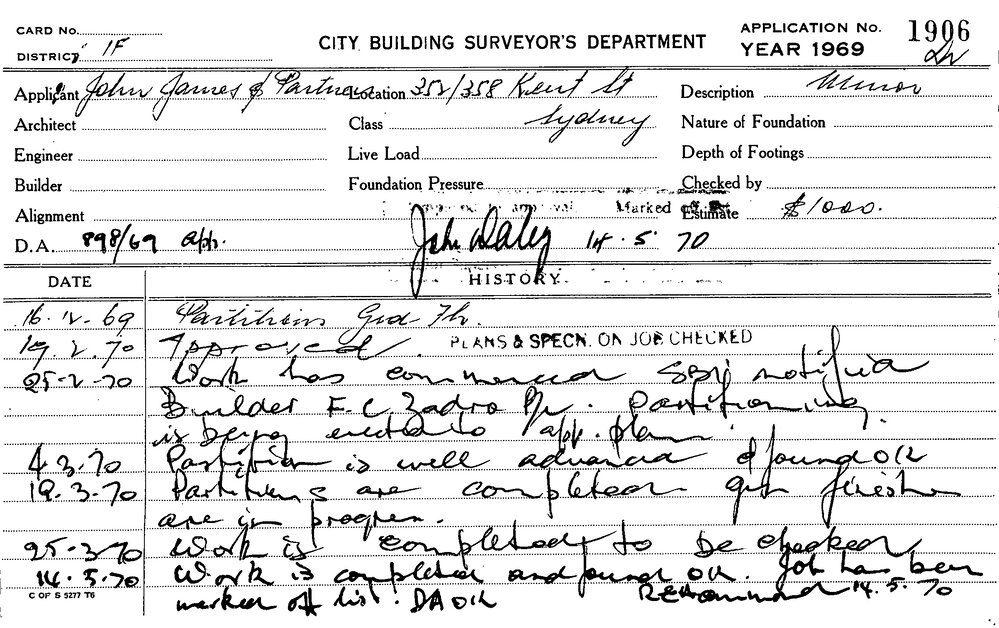 CARD No.
DISTRICT 1F
CITY BUILDING SURVEYOR'S DEPARTMENT
APPLICATION No. 1906
YEAR 1969
Applicant John James & Partners
Location 352/358 Kent St
Description Minor
Architect
Class Sydney
Nature of Foundation
Engineer
Live Load
Depth of Footings
Builder
Foundation Pressure
Checked by
Alignment
Marked
Estimate $1000.
D.A. 898/69 app.
John Daley 14.5.70
DATE
HISTORY
16.12.69 Partitions Grd Flr.
19.2.70 Approved. PLANS & SPECN. ON JOB CHECKED
25-2-70 Work has commenced notified
Builder F.C. Zadro P/L. Partitioning
is being erected to app. plan.
4.3.70 Partition is well advanced & found OK
19.3.70 Partitions are completed
are in progress.
25-3-70 Work is completed to be checked
14.5.70 Work is completed and found OK. Job has been
marked off list. DA OK 14.5.70
C OF S 5277 T6